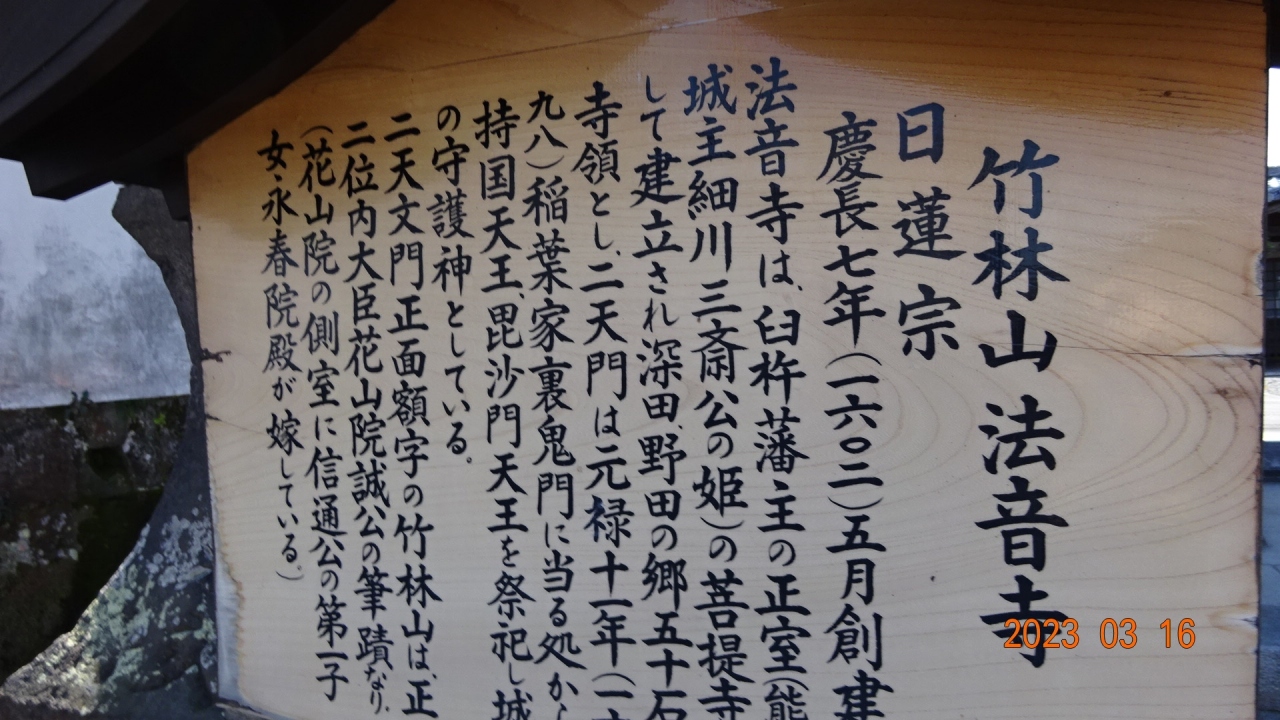 竹林山 法音寺
日蓮宗
慶長七年（一六〇二）五月創建
法音寺は、臼杵藩主の正室（熊
城主細川三斎公の姫）の菩提寺
して建立され深田、野田の郷五十石
寺領とし、二天門は元禄十一年（一六
九八）稲葉家裏鬼門に当る処から
持国天王、毘沙門天王を祭祀し城
の守護神としている。
二天文門正面額字の竹林山は、正
二位内大臣花山院誠公の筆蹟なり。
（花山院の側室に信通公の第一子
女・永春院殿が嫁している。）
2023 03 16